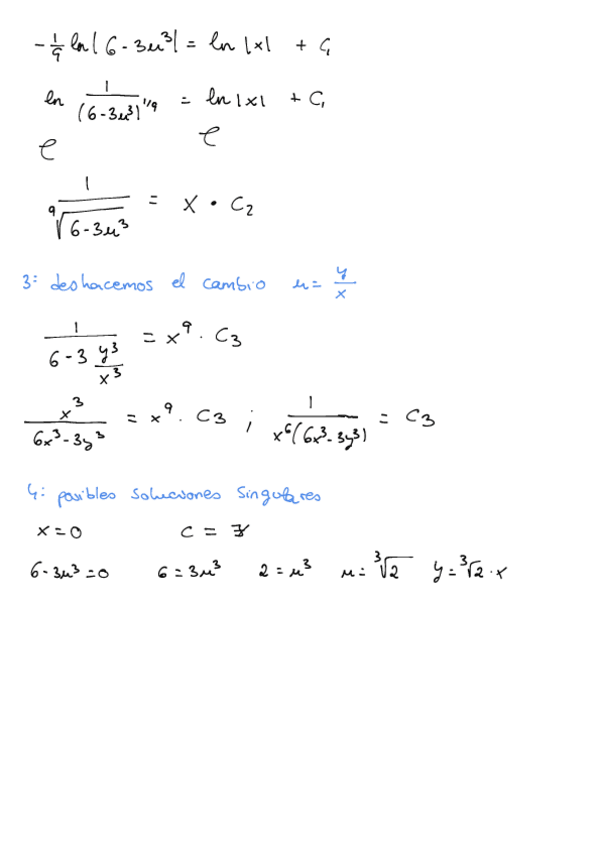 -1/9 ln|6-3u³| = ln|x| + C₁
ln 1/(6-3u³)^1/9 = ln|x| + C₁
e e
1/⁹√(6-3u³) = x · C₂
3: deshacemos el cambio u = y/x
1/(6-3 y³/x³) = x⁹ · C₃
x³/(6x³-3y³) = x⁹ · C3 ; 1/(x⁶(6x³-3y³)) = C3
4: posibles soluciones singulares
x=0 C =
6-3u³=0 6=3u³ 2=u³ u=³√2 y=³√2·x